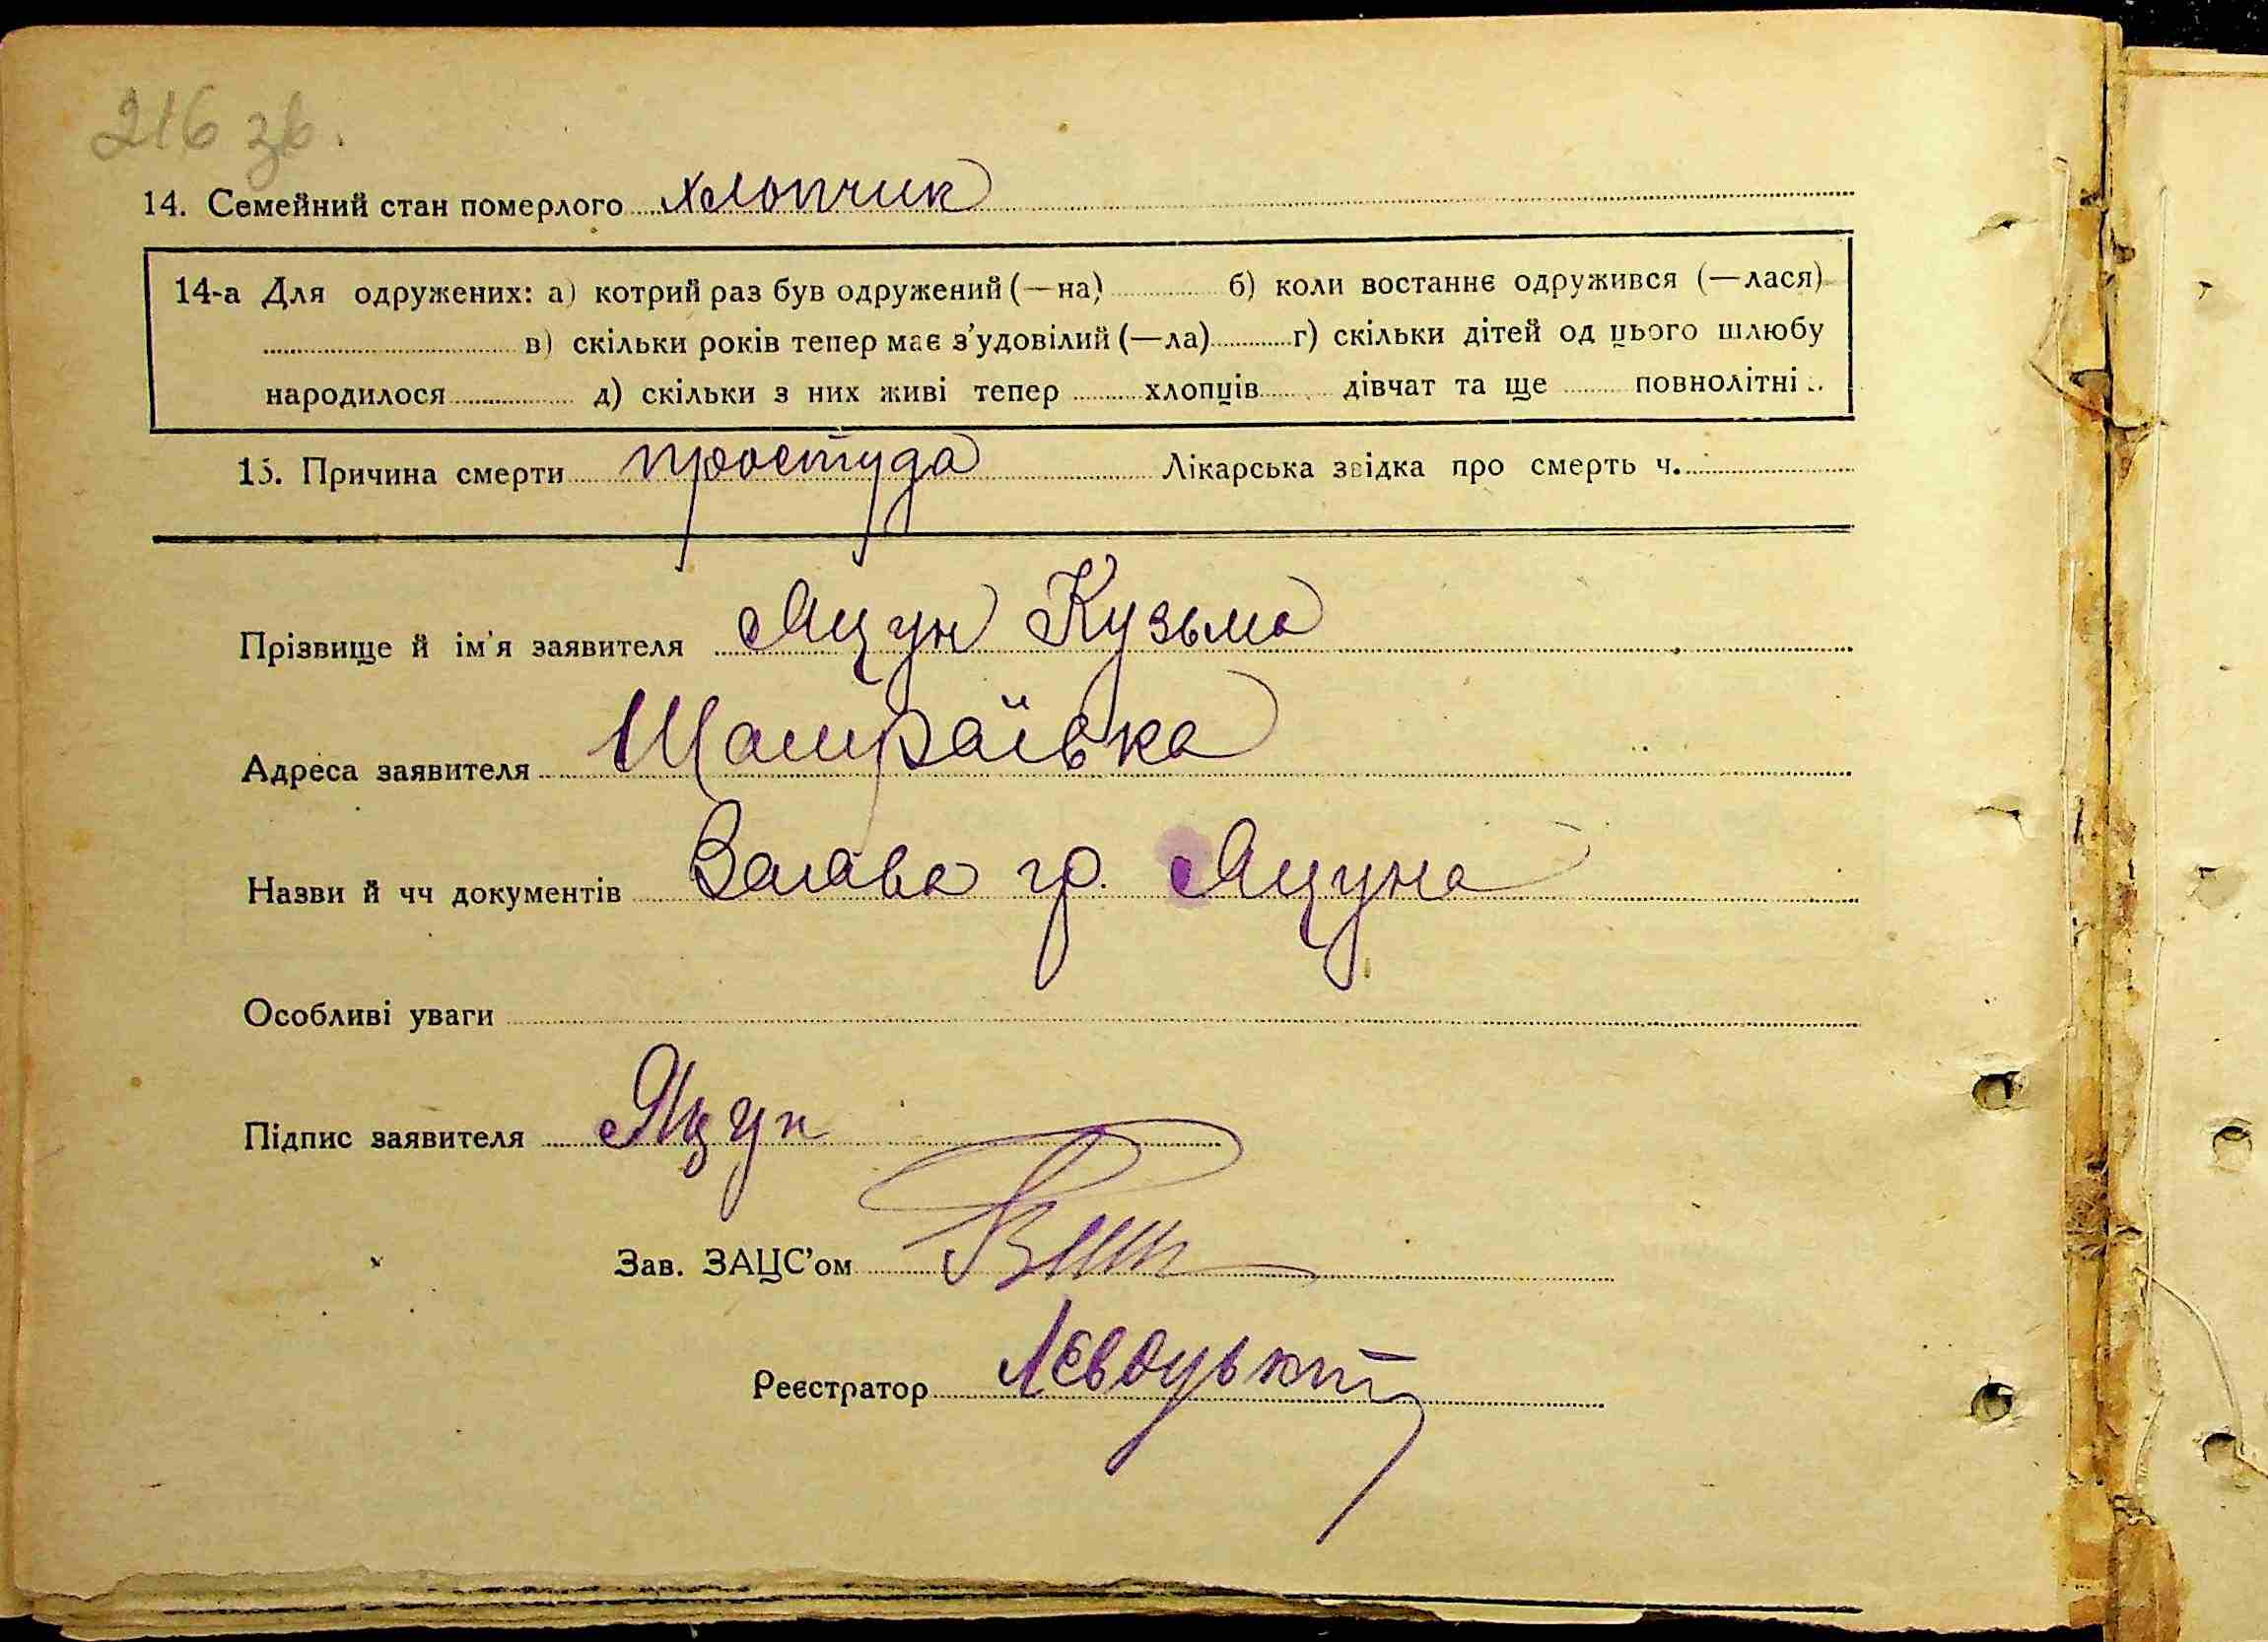 216 зв.
14. Семейний стан померлого хлопчик
14-а Для одружених: а) котрий раз був одружений (—на) б) коли востаннє одружився (—лася)
в) скільки років тепер має з'удовілий (—ла) г) скільки дітей од цього шлюбу
народилося д) скільки з них живі тепер хлопців дівчат та ще повнолітні
15. Причина смерти простуда Лікарська звідка про смерть ч.
Прізвище й ім'я заявителя Яцун Кузьма
Адреса заявителя Шамраївка
Назви й чч документів Заява гр. Яцуна
Особливі уваги
Підпис заявителя Яцун
Зав. ЗАЦС'ом
Реєстратор